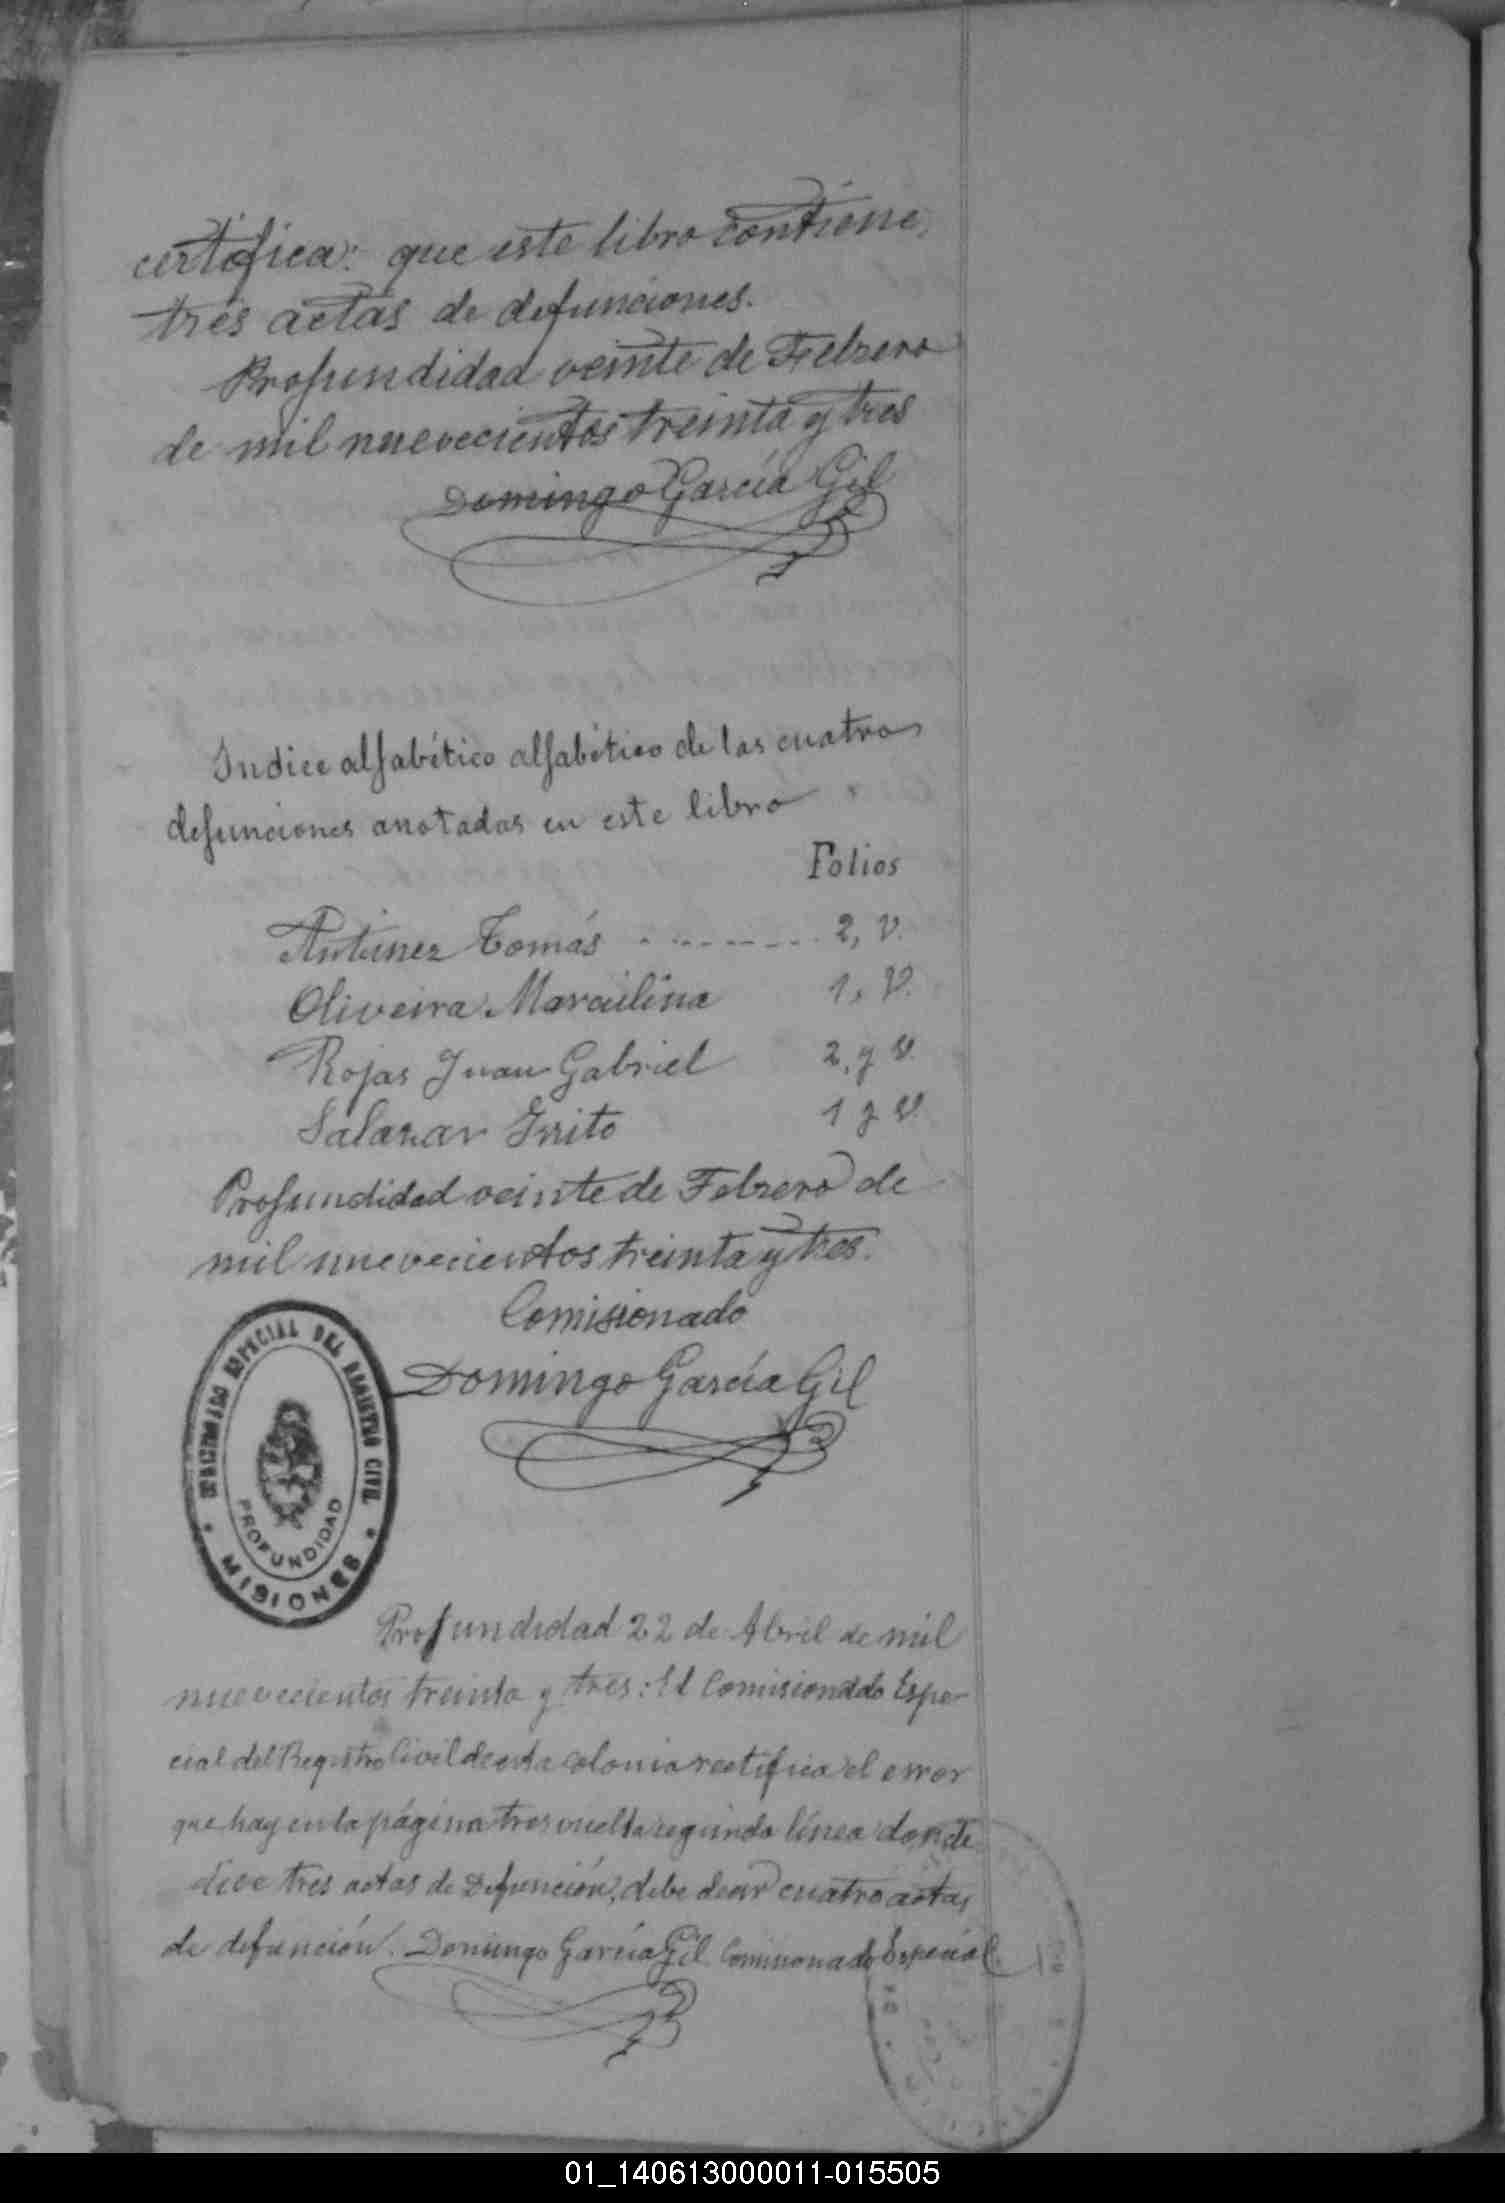 certifica: que este libro contiene,
tres actas de defunciones.
Profundidad veinte de Febrero
de mil nuevecientos treinta y tres
Domingo García Gil
Indice alfabético alfabético de las cuatro
defunciones anotadas en este libro
Folios
Antunez Tomás ---------- 2, v.
Oliveira Marculina 1, v.
Rojas Juan Gabriel 2, y v.
Salazar Irrito 1 y v.
Profundidad veinte de Febrero de
mil nuevecientos treinta y tres.
Comisionado
Domingo García Gil
ESPECIAL DEL REGISTRO CIVIL
PROFUNDIDAD
MISIONES
Profundidad 22 de Abril de mil
nuevecientos treinta y tres: El Comisionado Espe-
cial del Registro Civil de esta colonia rectifica el error
que hay en la página tres vuelta segunda línea donde
dice tres actas de Defunción, debe decir cuatro actas
de defunción. Domingo García Gil Comisionado Especial
01_140613000011-015505